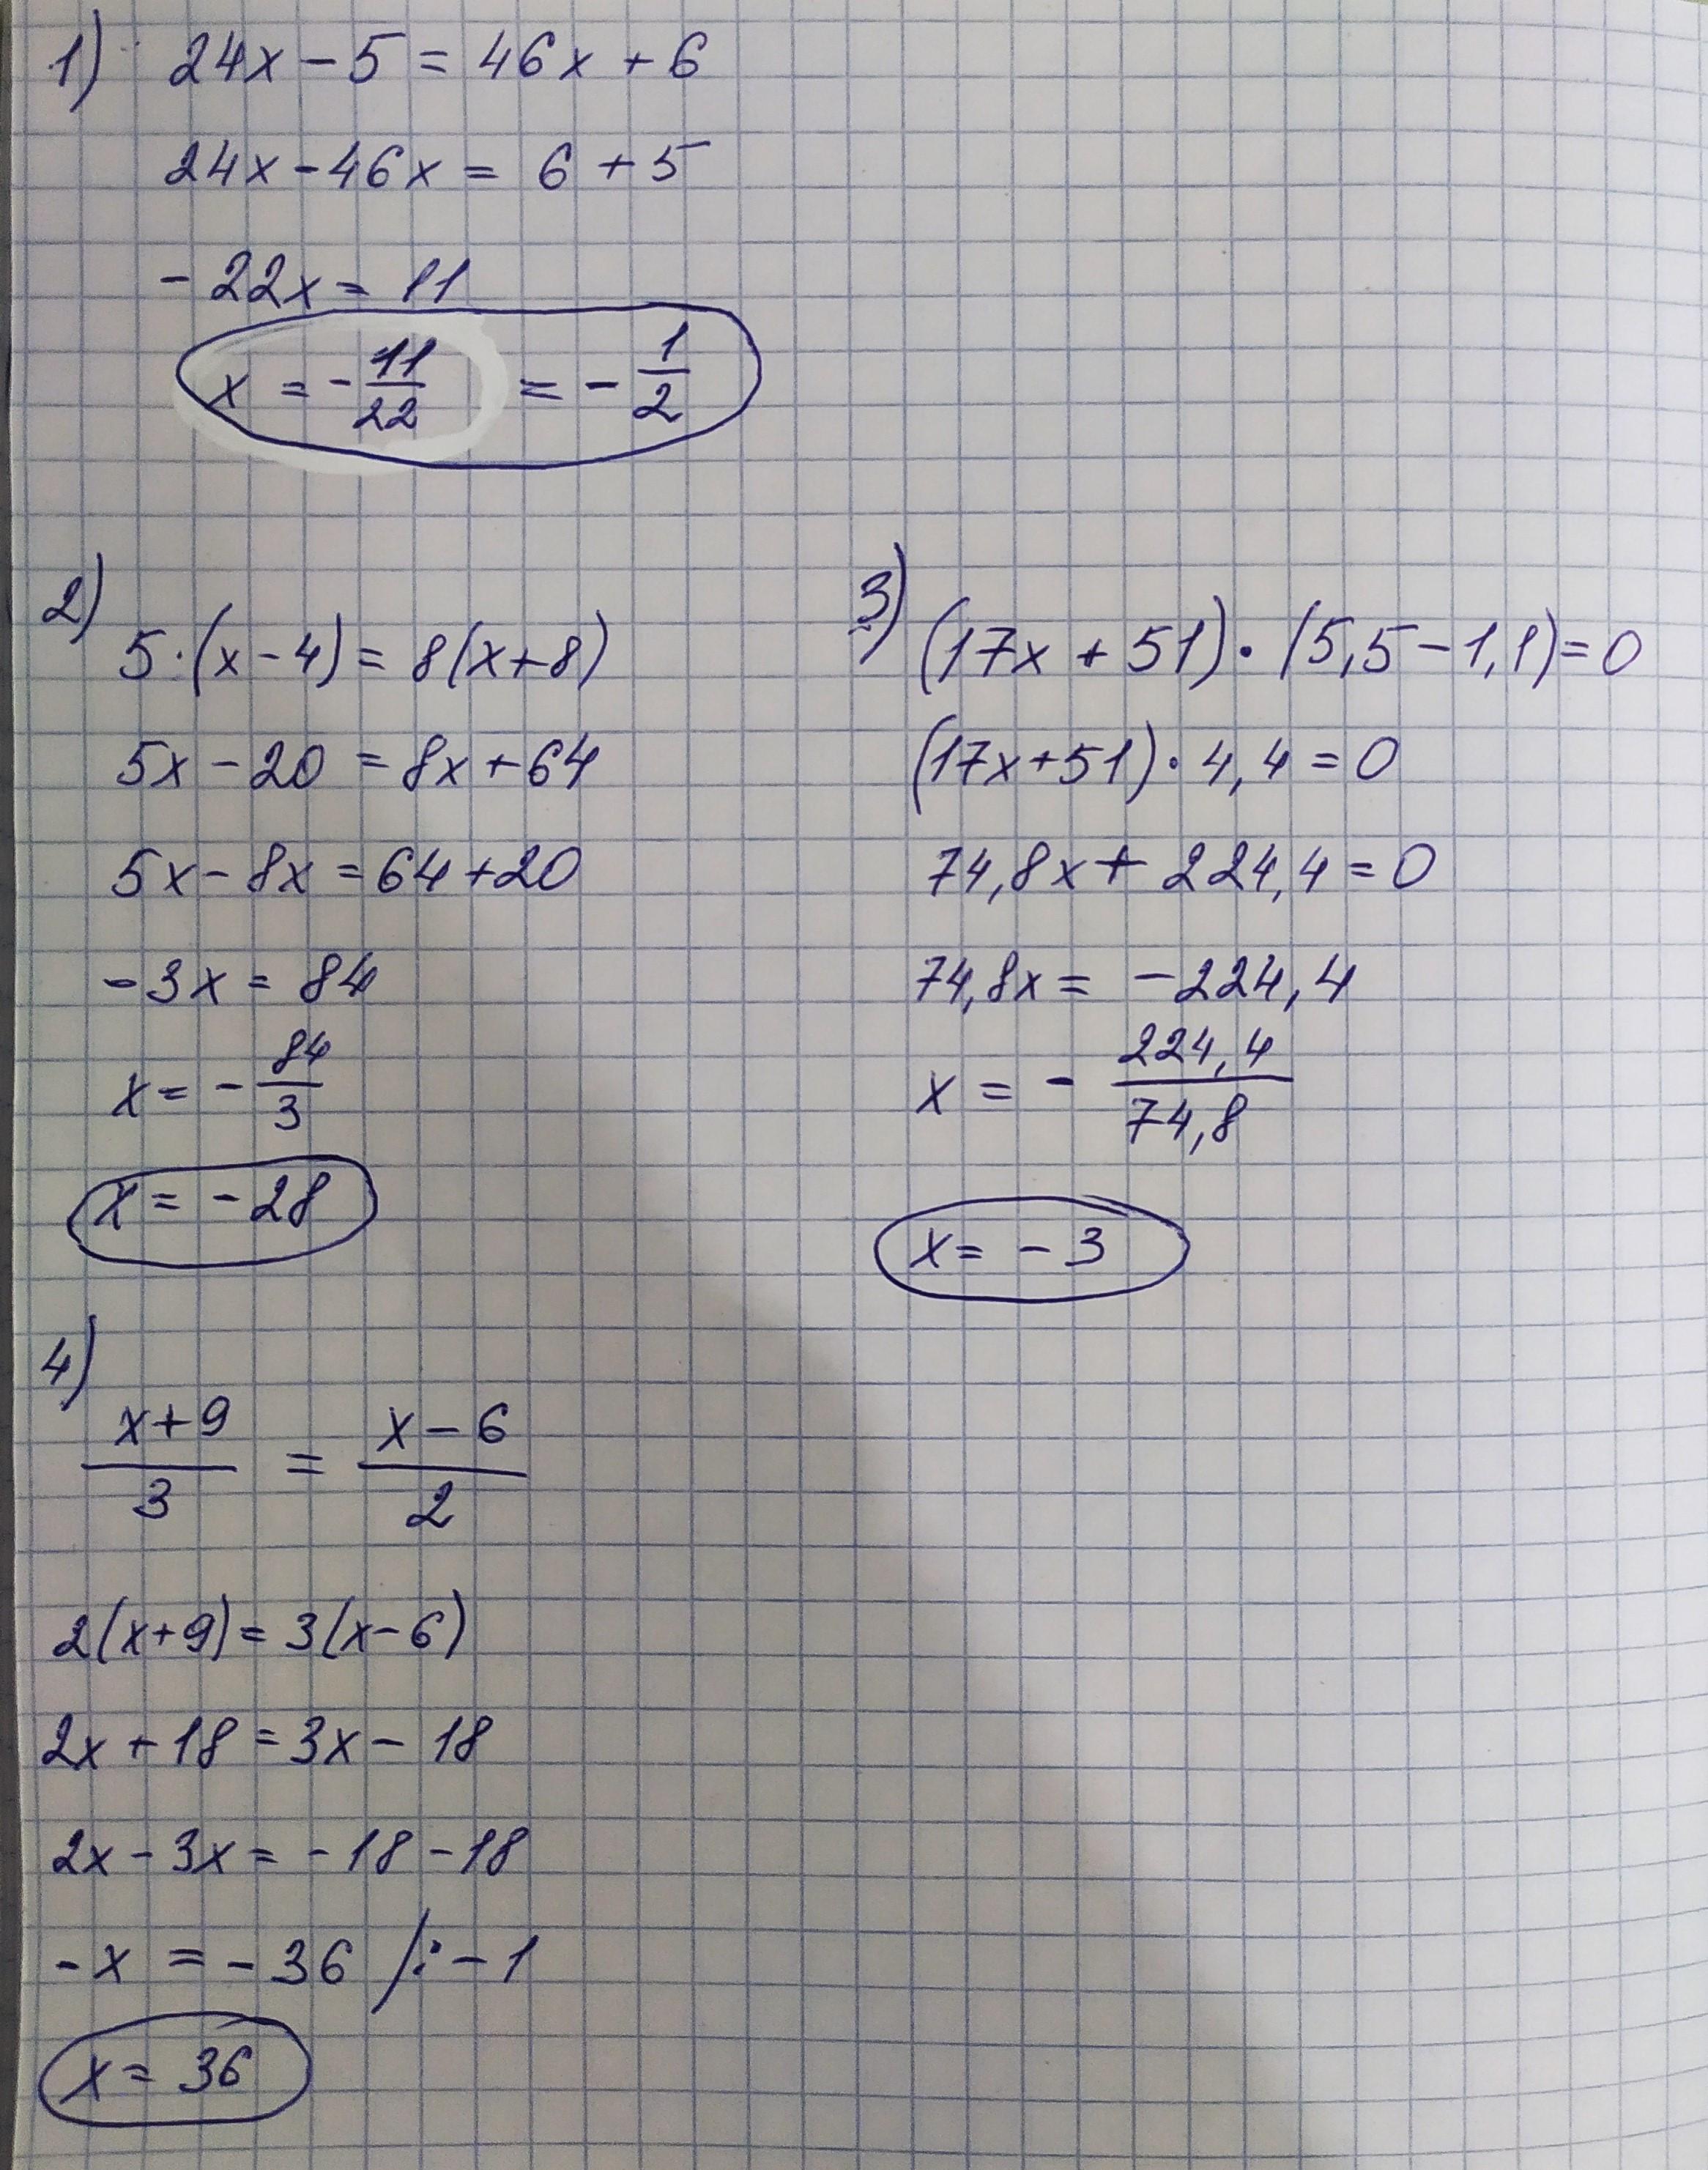 1) 24x - 5 = 46x + 6
24x - 46x = 6 + 5
- 22x = 11
x = - 11/22 = - 1/2
2)
5·(x - 4) = 8(x + 8)
5x - 20 = 8x + 64
5x - 8x = 64 + 20
- 3x = 84
x = - 84/3
x = - 28
3) (17x + 51) · (5,5 - 1,1) = 0
(17x + 51) · 4,4 = 0
74,8x + 224,4 = 0
74,8x = - 224,4
x = - 224,4/74,8
x = - 3
4)
x + 9/3 = x - 6/2
2(x + 9) = 3(x - 6)
2x + 18 = 3x - 18
2x - 3x = - 18 - 18
- x = - 36 /: - 1
x = 36